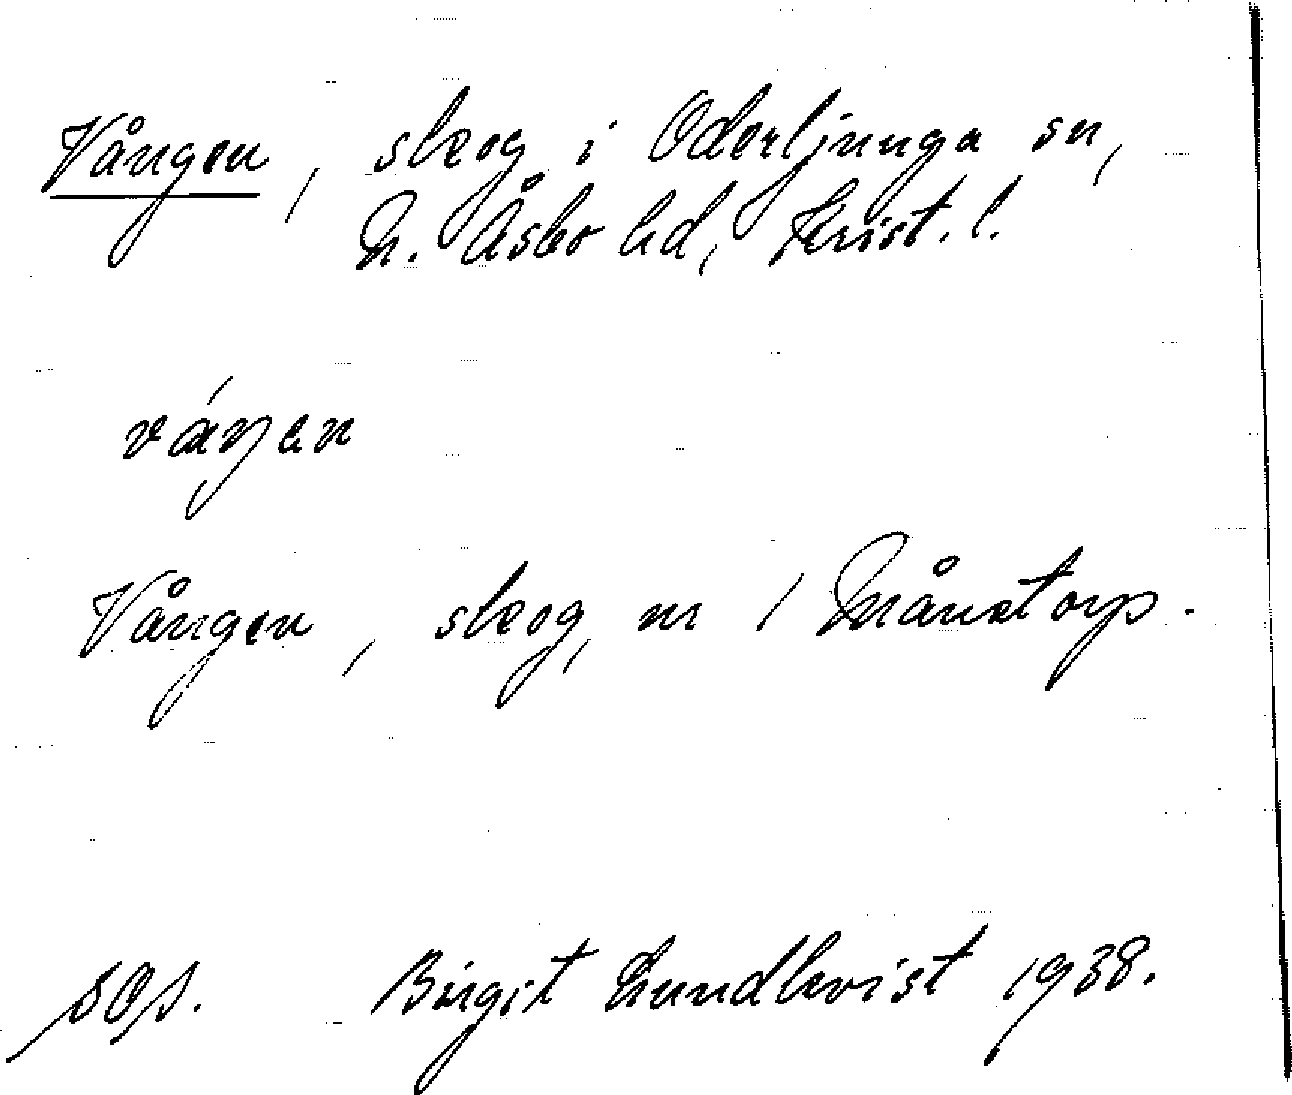 Vången, skog i Oderljunga sn,
N. Åsbo hd, Krist. l.
váŋen
Vången, skog, nr 1 Månstorp.
Birgit Lundkvist 1938.